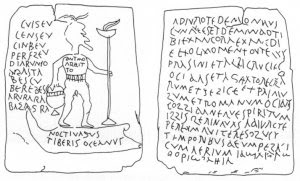 CVIGEV
CENSEV
CINBEV
PERFLEV
DIARVNCO
DEASTA
BESCV
BEREBESCV
ARVRARA
BAZAGRA
ANTMO
ARAIT
TO
NOCTIVAGVS
TIBERIS OCEANVS
ADIVRO TE DEMON QVI
CVNQVE ES ET DEMANDO TI
BI EX ANC ORA EX ANC DI
E EX OC MOMENTO VT EQVOS
PRASINI ET ALBI CRVCIES
OCIDAS ET AGITATORES CLA
RVM ET FELICE ET PRIMV
LVM ET ROMANVM OCIDAS
COLLIDAS NEQVE SPIRITVM
ILLIS LERINQVAS ADIVRO TE
PER EVM QVI TE RESOLVIT
TEMPORIBVS DEVM PELAGI
CVM AERIVM